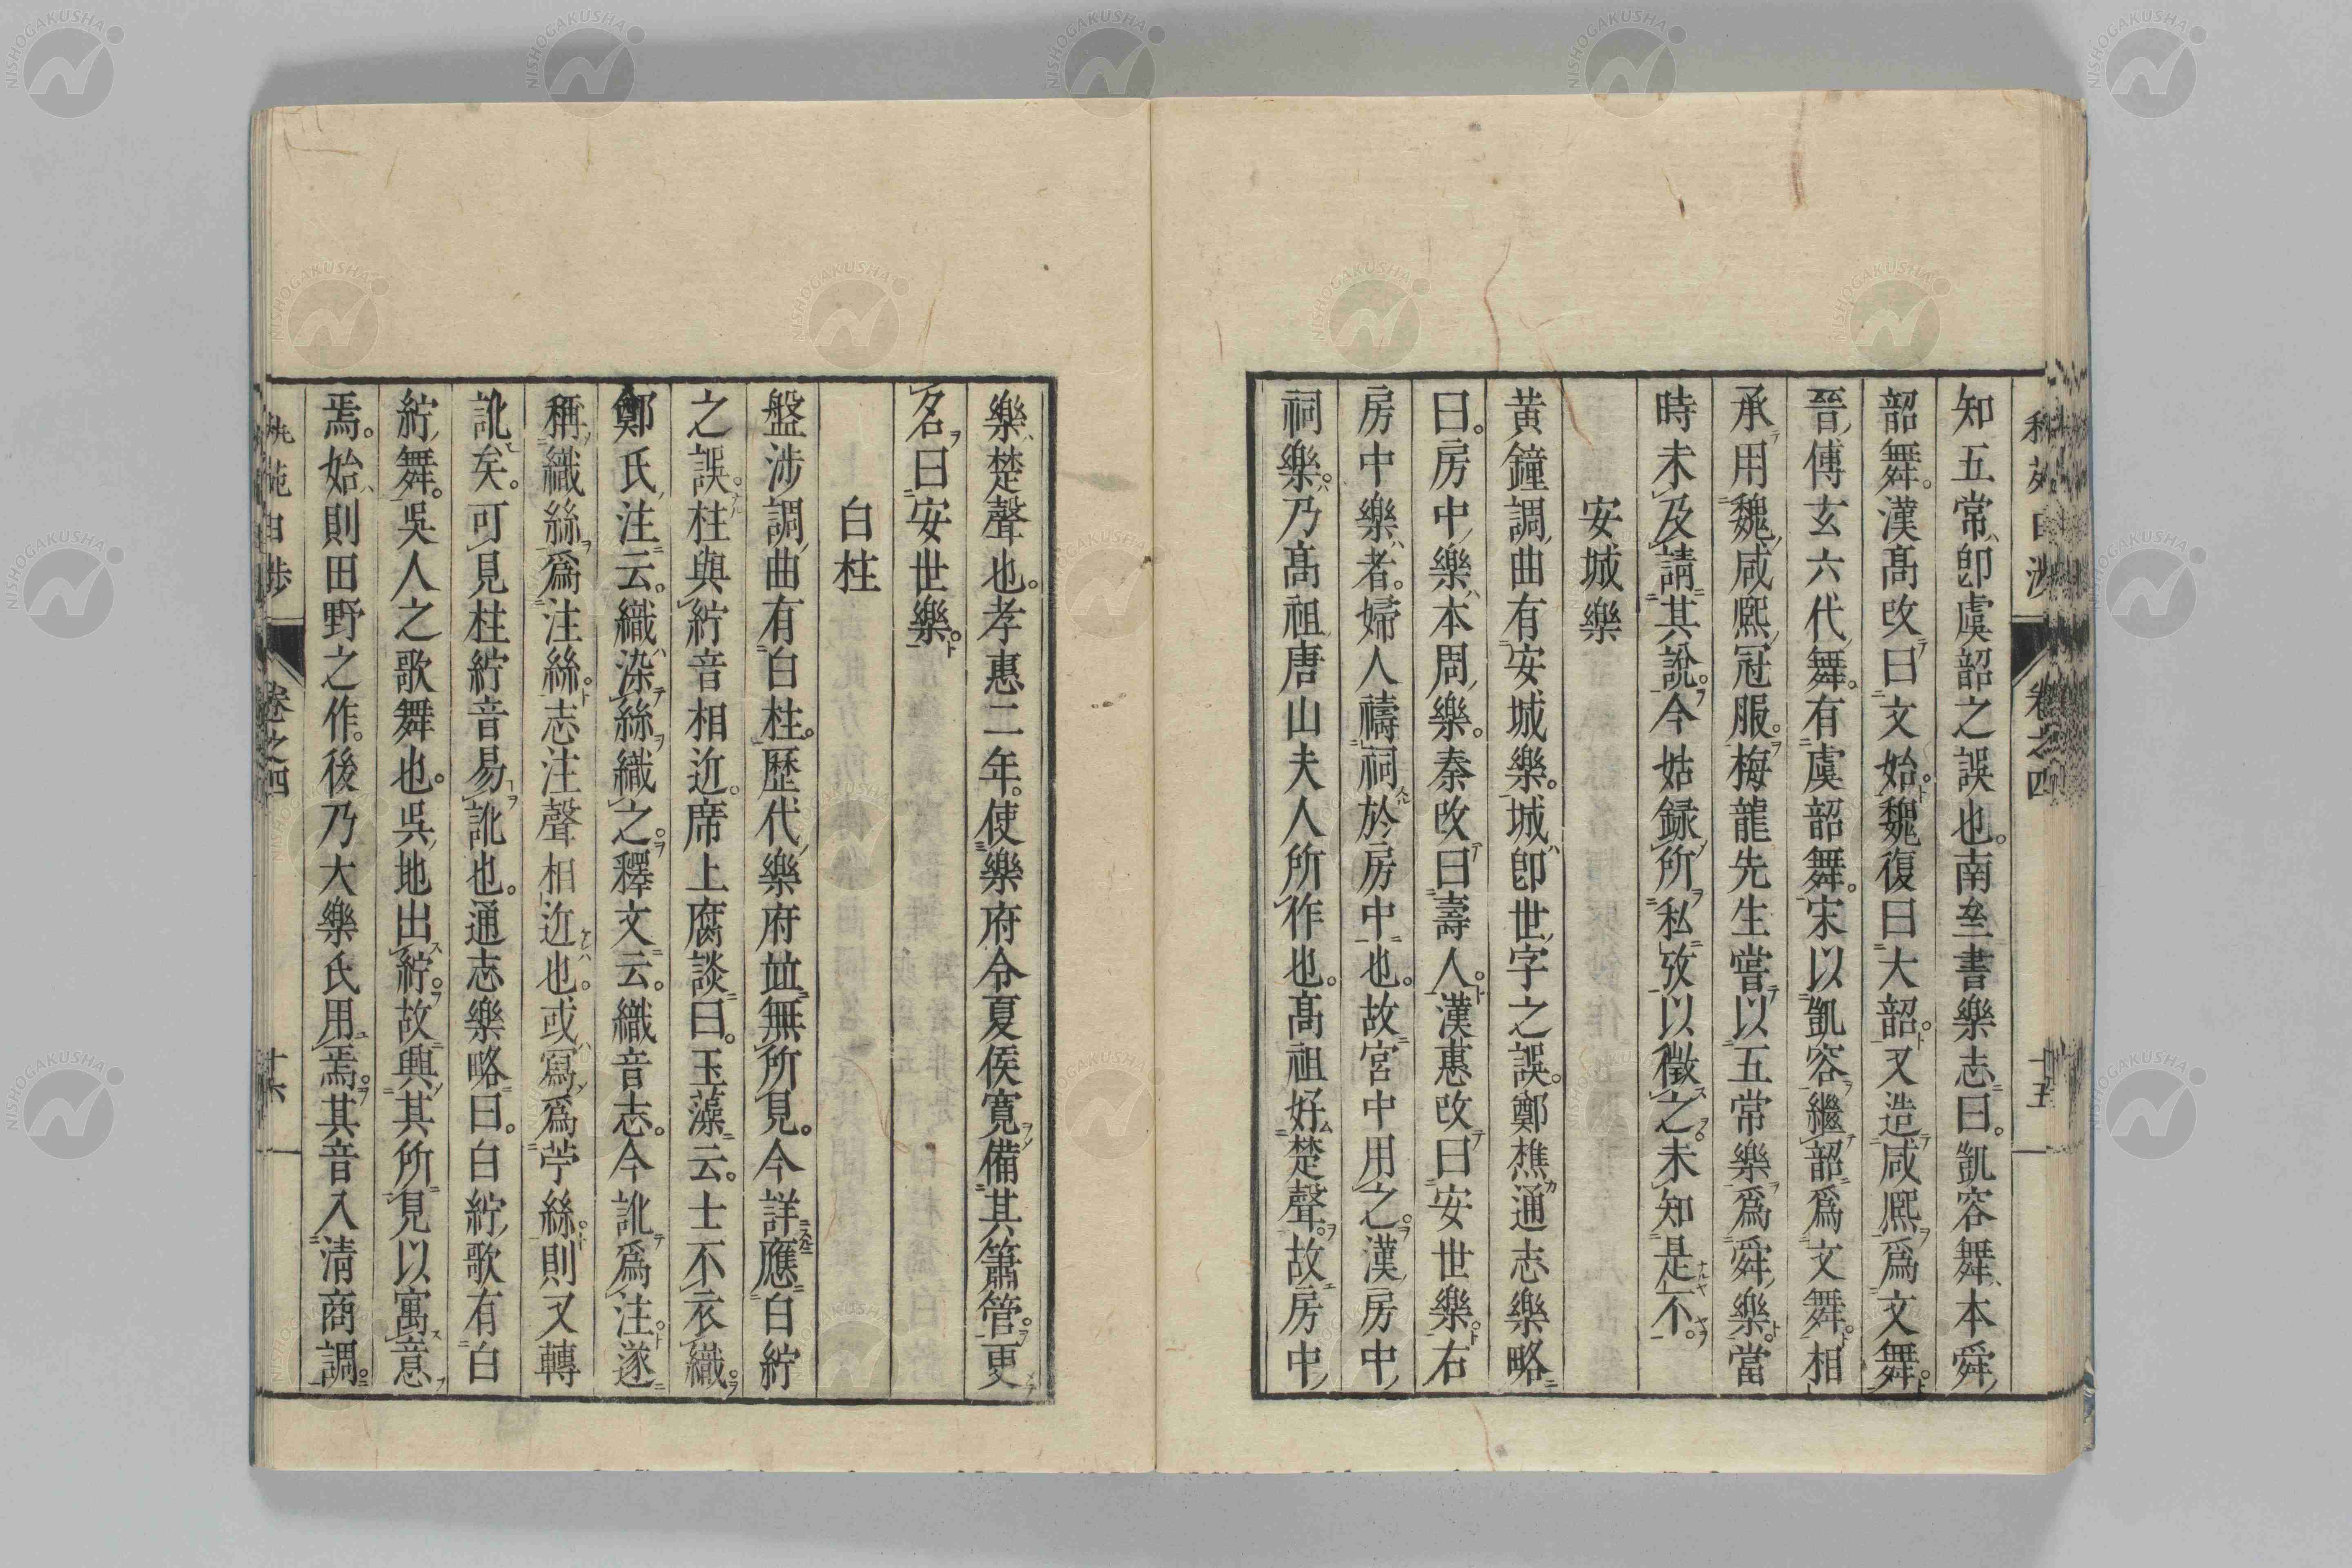 知五常卽虞韶之誤也。南齊書樂志曰。凱容舞、本舜
韶舞。漢高改曰文始。魏復曰大韶。又造咸熈爲文舞。
晉傅玄六代舞。有虞韶舞。宋以凱容繼韶爲文舞。相
承用魏咸熈冠服。梅龍先生嘗以五常樂爲舜樂。當
時未及請其說。今姑録所私攷以徵之。未知是不。
安城樂
黃鐘調曲有安城樂。城卽世字之誤。鄭樵通志樂略
曰。房中樂本周樂。秦改曰壽人。漢惠改曰安世樂。右
房中樂者。婦人禱祠於房中也。故宮中用之。漢房中
祠樂。乃高祖唐山夫人所作也。高祖好楚聲。故房中
樂楚聲也。孝惠二年。使樂府令夏侯寛備其簫管。更
名曰安世樂。
白柱
盤涉調曲有白柱。歷代樂府竝無所見。今詳應白紵
之誤。柱與紵音相近。席上腐談曰。玉藻云。士不衣織。
鄭氏注云。織染絲織之。釋文云。織音志。今訛爲注。遂
稱織絲爲注絲。志注聲相近也。或寫爲苧絲。則又轉
訛矣。可見柱紵音易訛也。通志樂略曰。白紵歌有白
紵舞。吳人之歌舞也。吳地出紵。故興其所見以寓意
焉。始則田野之作。後乃大樂氏用焉。其音入淸商調。
卷之四
十五
卷之四
十六